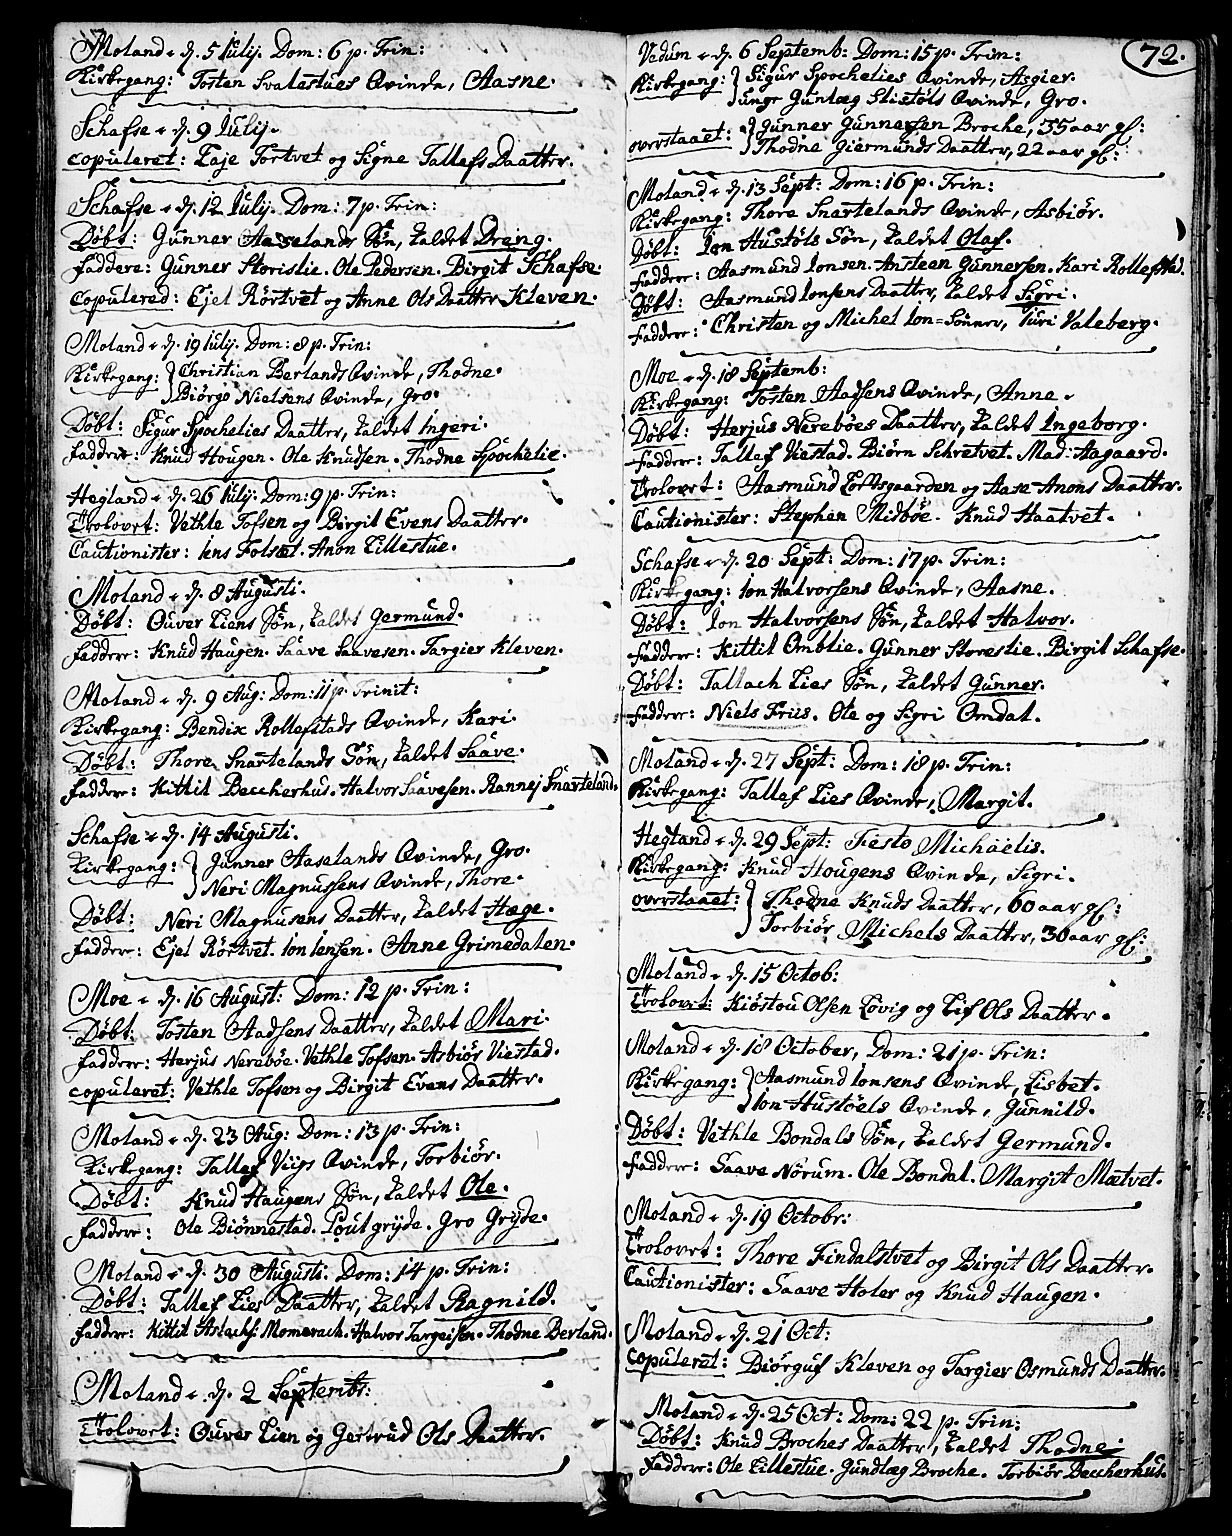 Moland d. 5 Iulij. Dom: 6 p. Trin:
Kirkegang: Tosten Svalestues Qvinde, Aasne.
Schafse d. 9 Iulij.
copuleret: Taje Tortvet og Signe Tallefs Daatter.
Schafse d. 12 Iulij. Dom: 7 p. Trin:
Døbt: Gunner Aaselands Søn, kaldet Dreng.
Faddere: Gunner Storislie. Ole Pedersen. Birgit Schafse.
copulered: Ejel Rørtvet og Anne Ols Daatter Kleven.
Moland d. 19 Iulij. Dom: 8 p. Trin:
Kirkegang: Christian Berlands Qvinde, Thodne.
Biørgo Nielsens Qvinde, Gro.
Døbt: Sigur Spochelies Daatter, kaldet Ingeri.
Faddere: Knud Hougen. Ole Knudsen. Thodne Spochelie.
Hegland d. 26 Iulij. Dom: 9 p. Trin:
Trolovet: Vethle Tofsen og Birgit Evens Daatter.
Cautionister: Iens Folset. Anon Lillestue.
Moland d. 8 Augusti.
Døbt: Ouver Liens Søn, kaldet Germund.
Faddere: Knud Haugen. Saave Saavesen. Targier Kleven.
Moland d. 9 Aug: Dom: 11 p. Trinit:
Kirkegang: Bendix Rollefstads Qvinde, Kari.
Døbt: Thore Snartelands Søn, kaldet Saave.
Faddere: Kittil Beccherhus. Halvor Saavesen. Rannej Snarteland.
Schafse d. 14 Augusti.
Kirkegang: Gunner Aaselands Qvinde, Gro.
Neri Magnussens Qvinde, Thore.
Døbt: Neri Magnusens Daatter, kaldet Hæge.
Faddere: Ejel Rørtvet. Ion Iensen. Anne Grimedalen.
Moe d. 16 August: Dom: 12 p. Trin:
Døbt: Tosten Aadsens Daatter, kaldet Mari.
Faddere: Herjus Nerebøe. Vethle Tofsen. Asbiør Viestad.
copuleret: Vethle Tofsen og Birgit Evens Daatter.
Moland d. 23 Aug: Dom: 13 p. Trin:
Kirkegang: Tallef Viigs Qvinde, Torbiør.
Døbt: Knud Haugens Søn, kaldet Ole.
Faddere: Ole Biønnestad. Lout grÿde. Gro Grÿde.
Moland d. 30 Augusti. Dom: 14 p. Trin:
Døbt: Tallef Lies Daatter, kaldet Ragnild.
Faddere: Kittil Aslachs: Momerach. Halvor Targeisen. Thodne Berland.
Moland d. 2 Septemb:
Trolovet: Ouver Lien og Gertrud Ols Daatter.
72.
Vedum d. 6 Septemb: Dom: 15 p. Trin:
Kirkegang: Sigur Spochelies Qvinde, Asgier.
unge Gunlæg Slistøls Qvinde, Gro.
overstaaet: Gunner Gunnersen Broche, 35 aar gl:
Thodne Giermunds Daatter, 22 aar gl:
Moland d. 13 Sept: Dom: 16 p. Trin:
Kirkegang: Thore Snartelands Qvinde, Asbiør.
Døbt: Ion Hustøls Søn, kaldet Olaf.
Faddere: Aasmund Ionsen. Ansteen Gunnersen. Kari Rollefstad.
Døbt: Aasmund Ionsens Daatter, kaldet Sigri.
Faddere: Christen og Michel Ion=Sønner, Turi Valeberg.
Moe d. 18 Septemb:
Kirkegang: Tosten Aadsens Qvinde, Anne.
Døbt: Herjus Nerebøes Daatter, kaldet Ingeborg.
Faddere: Tallef Viestad. Biørn Schretvet. Mad: Aagaard.
Trolovet: Aasmund Loftsgaarden og Aase Anons Daatter.
Cautionister: Stephen Midbøe. Knud Haatvet.
Schafse d. 20 Sept: Dom: 17 p. Trin:
Kirkegang: Ion Halvorsens Qvinde, Aasne.
Døbt: Ion Halvorsens Søn, kaldet Halvor.
Faddere: Kittil Omblie. Gunner Storeslie. Birgit Schafse.
Døbt: Tallach Lies Søn, kaldet Gunner.
Faddere: Niels Friis. Ole og Sigri Omdal.
Moland d. 27 Sept: Dom: 18 p. Trin:
Kirkegang: Tallef Lies Qvinde, Margit.
Hegland d. 29 Sept: Festo Michaelis.
Kirkegang: Knud Hougens Qvinde, Sigri.
overstaaet: Thodne Knuds Daatter, 60 aar gl:
Torbiør Michels Daatter, 30 aar gl:
Moland d. 15 Octob:
Trolovet: Kiøstou Olsen Lovig og Lif Ols Daatter.
Moland d. 18 October, Dom: 21 p. Trin:
Kirkegang: Aasmund Ionsens Qvinde, Lisbet.
Ion Hustøels Qvinde, Gunnild.
Døbt: Vethle Bondals Søn, kaldet Germund.
Faddere: Saave Norum. Ole Bondal. Margit Mætvet.
Moland d. 19 Octobr:
Trolovet: Thore Findalstvet og Birgit Ols Daatter.
Cautionister: Saave Holer og Knud Haugen.
Moland d. 21 Oct:
copuleret: Biørguf Kleven og Targier Osmunds Daatter.
Moland d. 25 Oct: Dom: 22 p. Trin:
Døbt: Knud Broches Daatter, kaldet Thodne.
Faddere: Ole Lillestue. Gundlæg Broche. Torbiør Beccherhus.